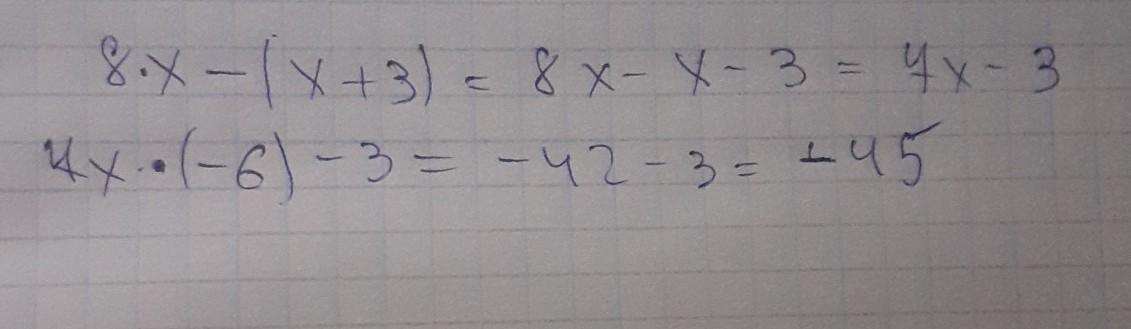 8·x-(x+3)=8x-x-3=7x-3
7x·(-6)-3=-42-3=-45